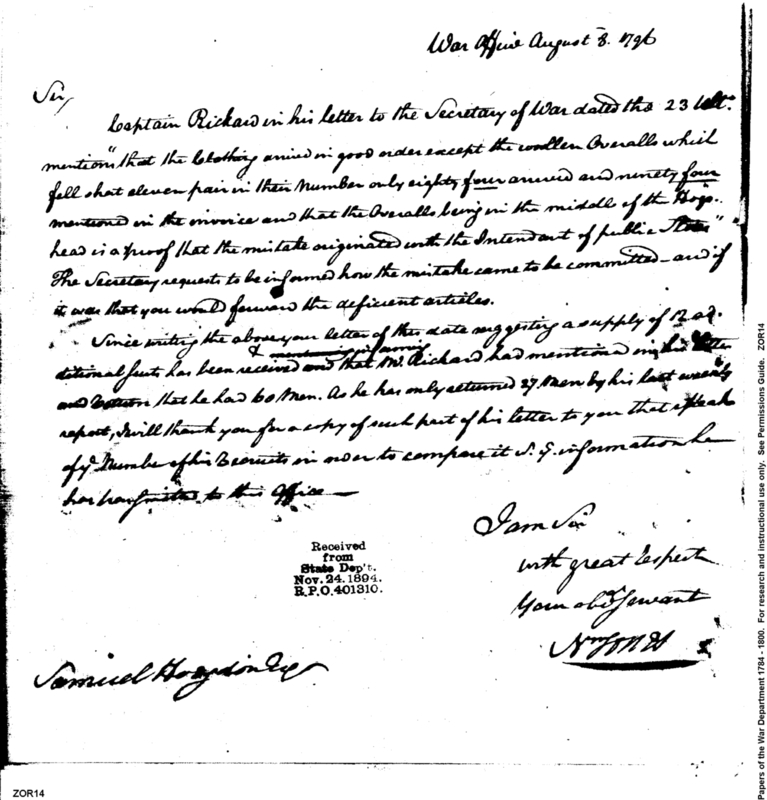 War Office August 8. 1796
Sir,
Captain Rickard in his letter to the Secretary of War dated the 23 Ulto.
mentions "that the Clothing arrived in good order except the woollen Overalls which
fell short eleven pair in their Number only eighty four arrived and ninety four
mentioned in the invoice and that the Overalls being in the middle of the Hogs-
head is a proof that the mistake originated with the Intendant of public Stores"
The Secretary requests to be informed how the mistake came to be committed – and if
it was that you would forward the deficient articles.
Since writing the above your letter of this date suggesting a supply of 12 ad-
ditional suits has been received & that Mr. Rickard had mentioned in his letter
and that he had 60 Men. As he has only returned 27 Men by his last weekly
report, I will thank you for a copy of such part of his letter to you that speak
of ye. Number of his Recruits in order to compare it information he
has transmitted to this Office —
I am Sir
with great Respect
Your obd. Servant
Nm Jones
Samuel Hogdon Esq
Received
from
State Dep't.
Nov. 24. 1894.
R.P.O. 401310.
ZOR14
Papers of the War Department 1784 - 1800. For research and instructional use only. See Permissions Guide. ZOR14